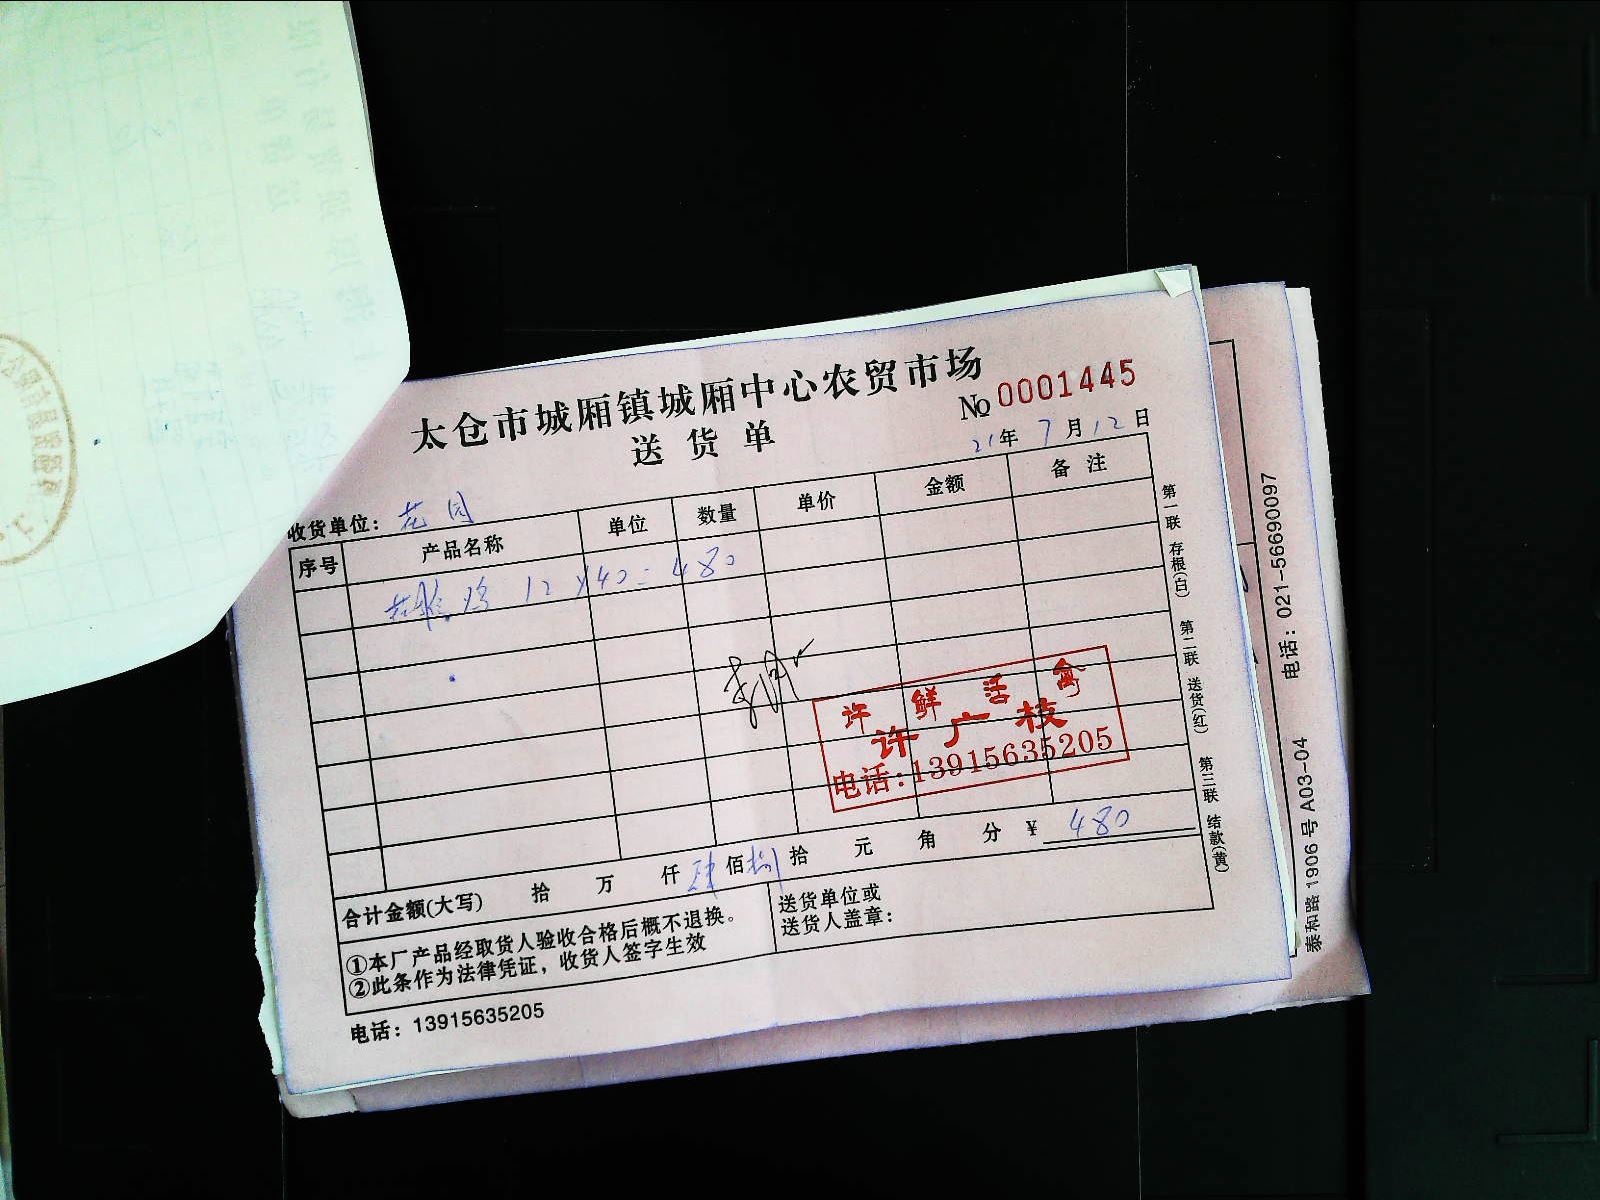 太仓市城厢镇城厢中心农贸市场
送货单
№ 0001445
21年 7月 12日
收货单位：花园
序号 产品名称 单位 数量 单价 金额 备注
鸡 12×40=480
许鲜活禽
许广枝
电话:13915635205
合计金额(大写) 拾 万 仟 肆 佰 捌 拾 元 角 分 ￥ 480
①本厂产品经取货人验收合格后概不退换。
②此条作为法律凭证，收货人签字生效
送货单位或
送货人盖章：
电话：13915635205
第一联 存根(白) 第二联 送货(红) 第三联 结款(黄)
电话：021-56690097
泰和路 1906 号 A03-04